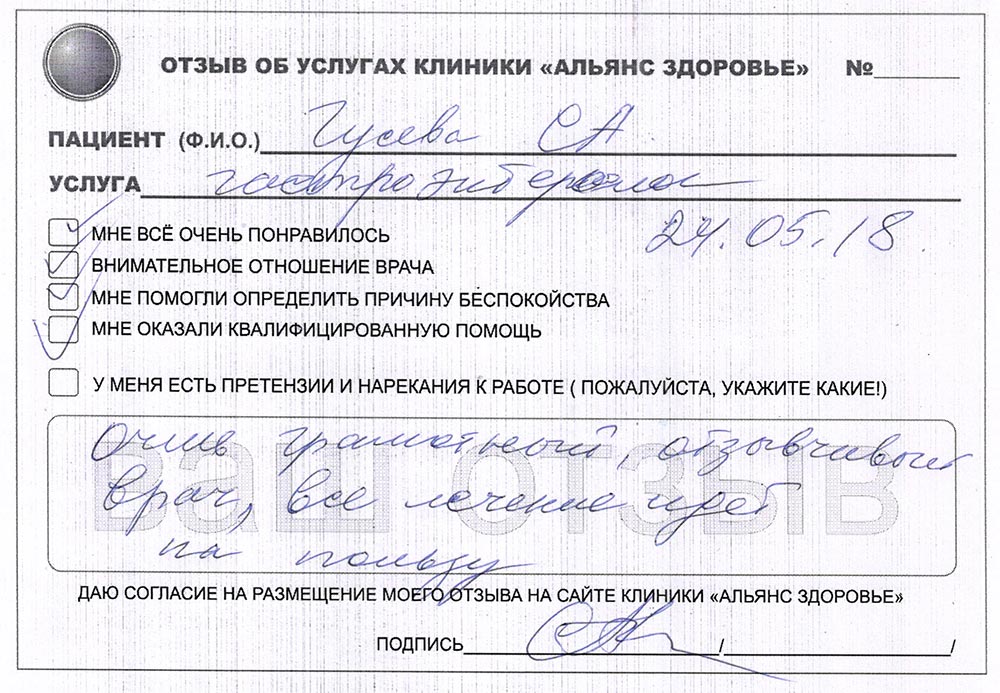 ОТЗЫВ ОБ УСЛУГАХ КЛИНИКИ «АЛЬЯНС ЗДОРОВЬЕ» №
ПАЦИЕНТ (Ф.И.О.) Гусева СА
УСЛУГА гастроэнтеролог
24.05.18.
МНЕ ВСЁ ОЧЕНЬ ПОНРАВИЛОСЬ
ВНИМАТЕЛЬНОЕ ОТНОШЕНИЕ ВРАЧА
МНЕ ПОМОГЛИ ОПРЕДЕЛИТЬ ПРИЧИНУ БЕСПОКОЙСТВА
МНЕ ОКАЗАЛИ КВАЛИФИЦИРОВАННУЮ ПОМОЩЬ
У МЕНЯ ЕСТЬ ПРЕТЕНЗИИ И НАРЕКАНИЯ К РАБОТЕ ( ПОЖАЛУЙСТА, УКАЖИТЕ КАКИЕ!)
ваш отзыв
Очень грамотный, отзывчивый
врач, все лечение идет
на пользу
ДАЮ СОГЛАСИЕ НА РАЗМЕЩЕНИЕ МОЕГО ОТЗЫВА НА САЙТЕ КЛИНИКИ «АЛЬЯНС ЗДОРОВЬЕ»
ПОДПИСЬ / /